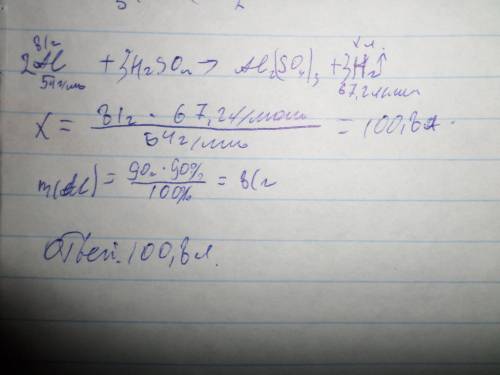 81г x л.
2Al + 3H₂SO₄ → Al₂(SO₄)₃ + 3H₂↑
54 г/моль 67,2 л/моль
X = 81г · 67,2 л/моль / 54 г/моль = 100,8 л.
m(Al) = 90г · 90% / 100% = 81 г
Ответ: 100,8 л.